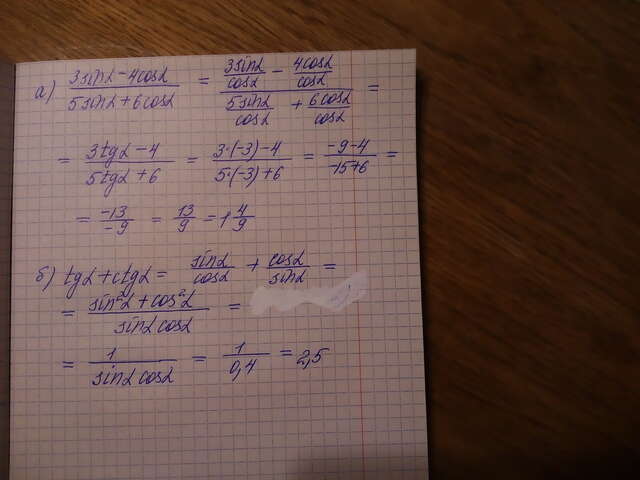 а) (3sinα - 4cosα)/(5sinα + 6cosα) = (3sinα/cosα - 4cosα/cosα)/(5sinα/cosα + 6cosα/cosα) =
= (3tgα - 4)/(5tgα + 6) = (3·(-3) - 4)/(5·(-3) + 6) = (-9-4)/(-15+6) =
= -13/-9 = 13/9 = 1 4/9
б) tgα + ctgα = sinα/cosα + cosα/sinα =
= (sin²α + cos²α)/(sinα cosα) =
= 1/(sinα cosα) = 1/0,4 = 2,5